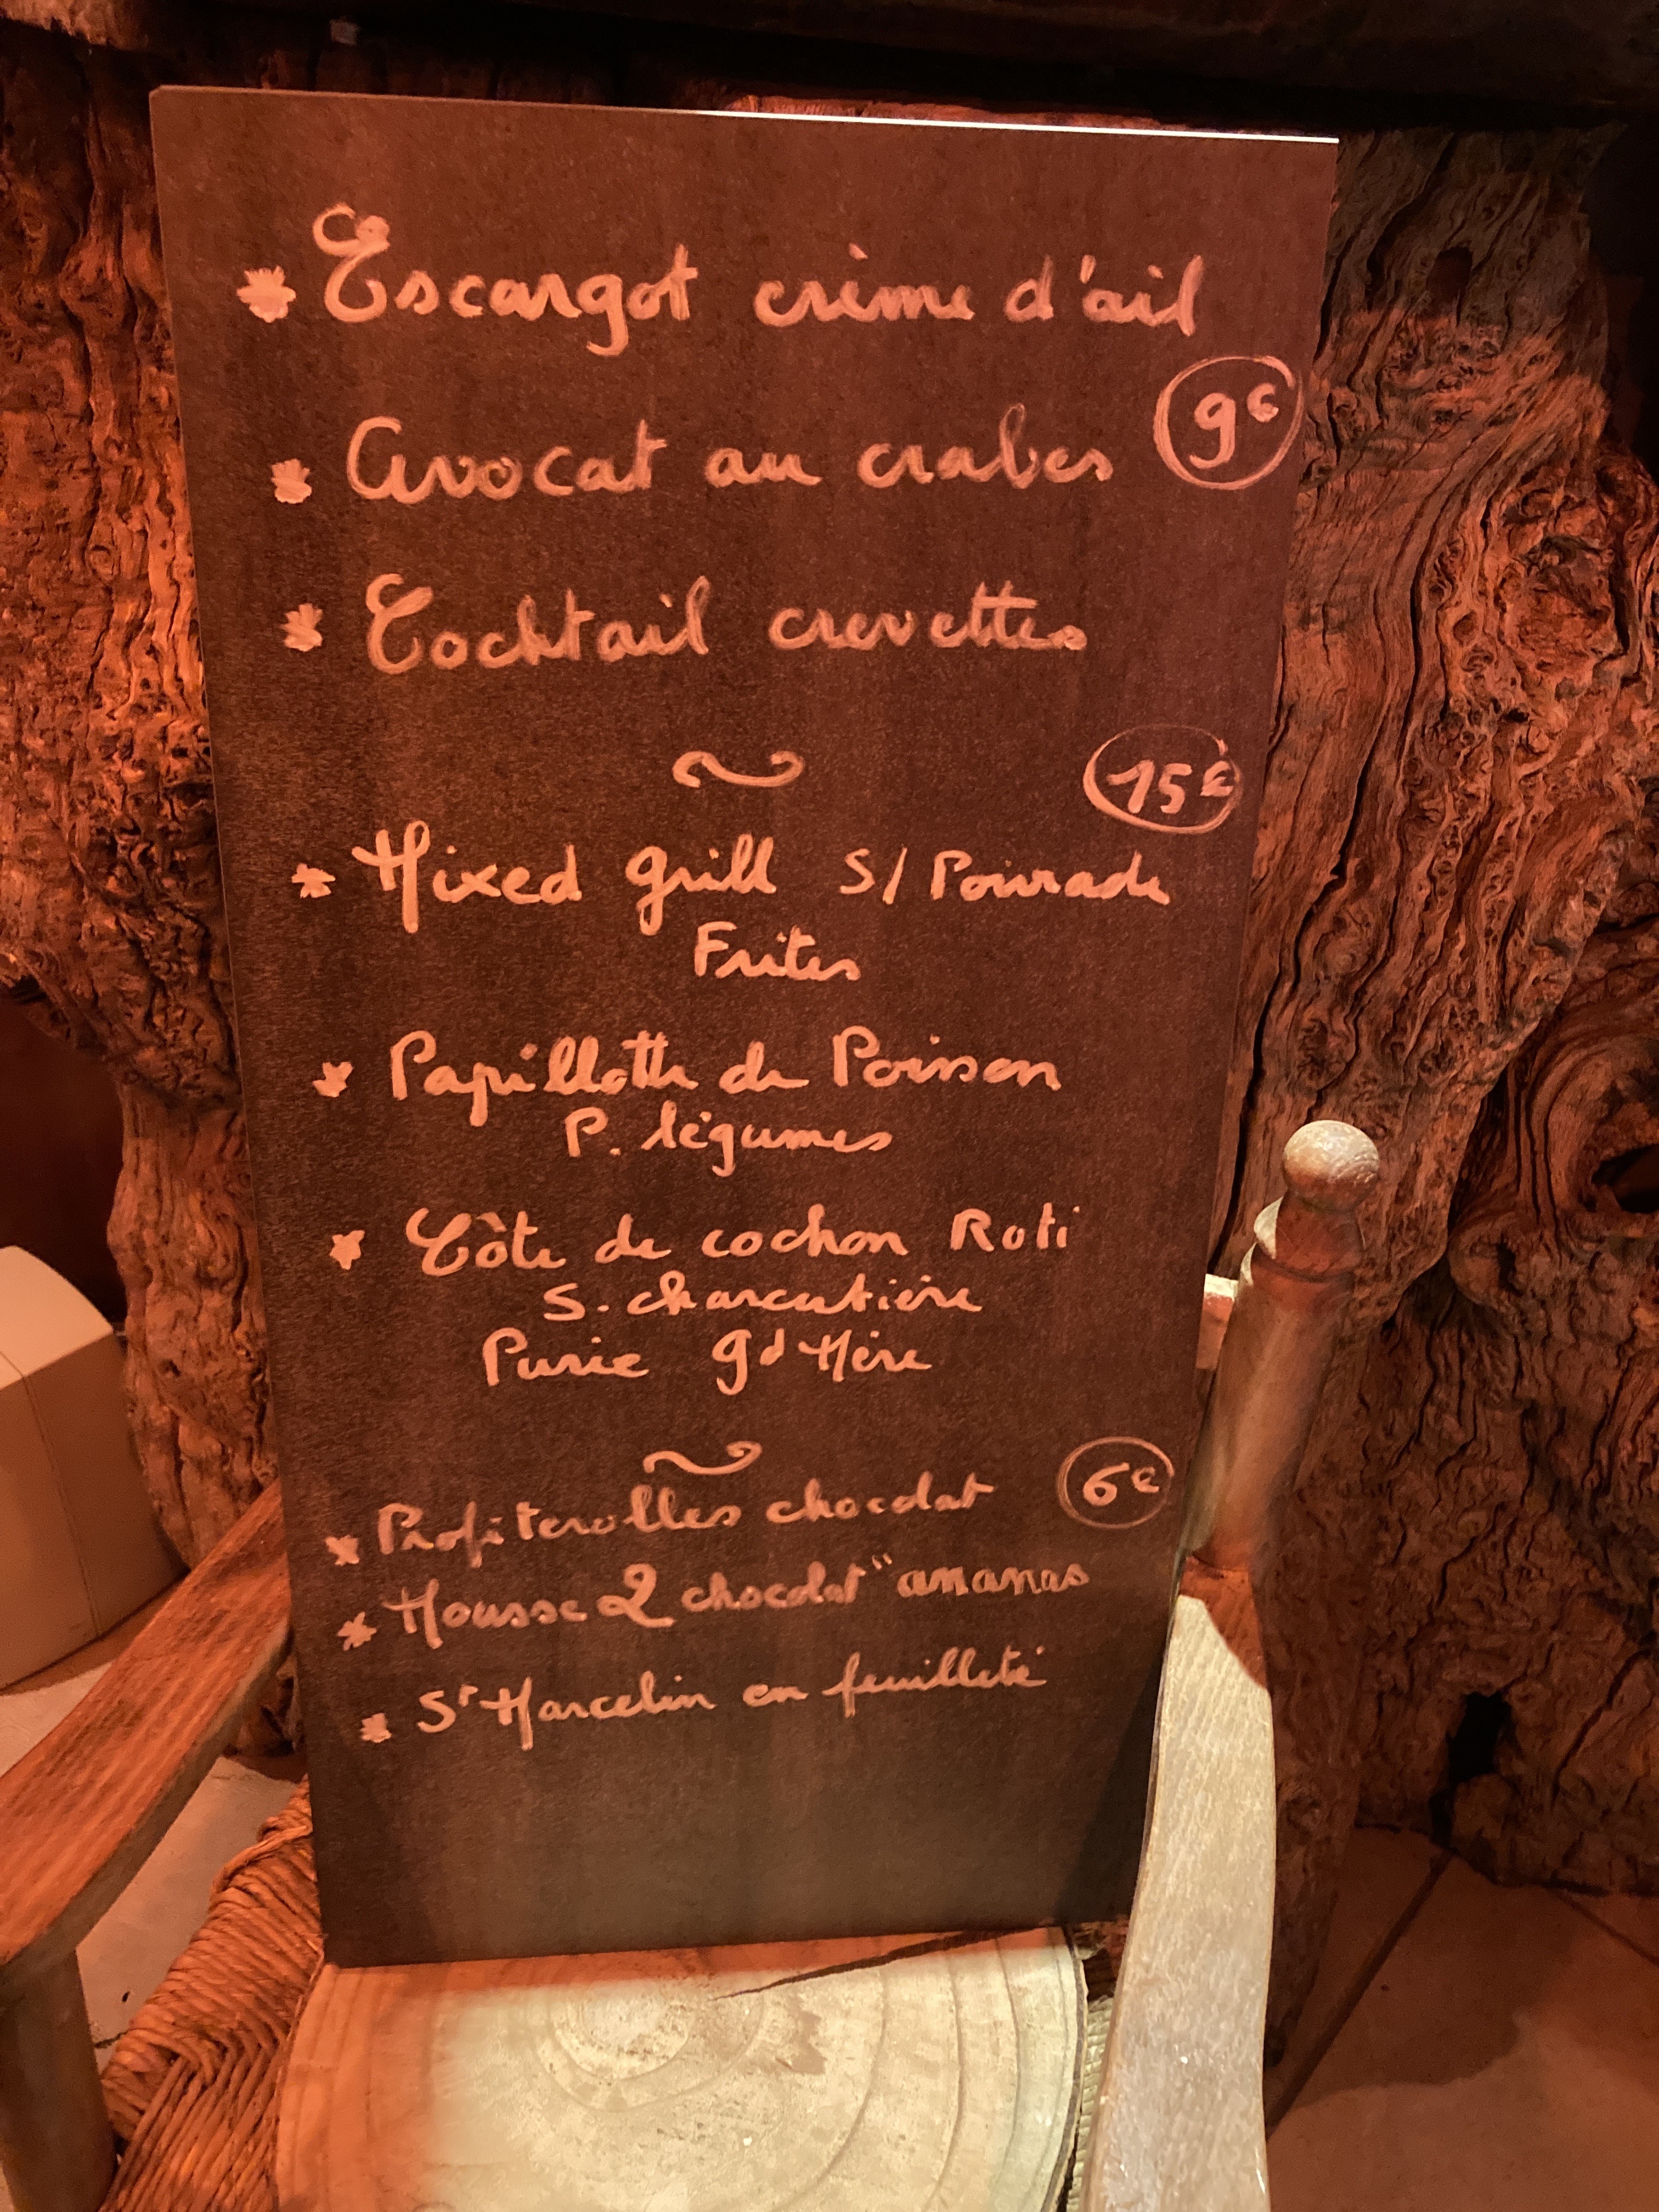 * Escargot crème d'ail
9€
* Avocat au crabes
* Cocktail crevettes
15€
* Mixed grill S/ Poivrade
Frites
* Papillotte de Poisson
P. légumes
* Côte de cochon Roti
S. charcutière
Purée gd Mère
6€
* Profiterolles chocolat
* Mousse 2 chocolat "ananas
* St Marcelin en feuilleté